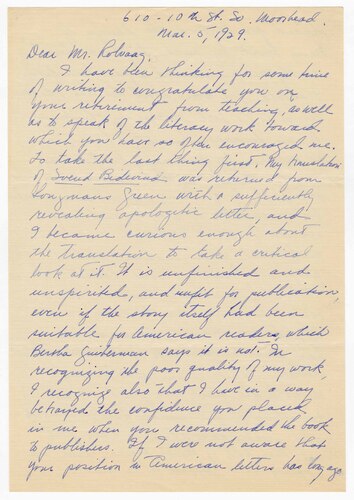 610 - 10th St. So. Moorhead.
Mar. 5, 1929.
Dear Mr. Rolvaag,
I have been thinking for some time
of writing to congratulate you on
your retirement from teaching, as well
as to speak of the literary work toward
which you have so often encouraged me.
To take the last thing first, my translation
of Sveud Bedevrud was returned from
Longmans Green with a sufficiently
revealing apologetic letter, and
I became curious enough about
the translation to take a critical
look at it. It is unfinished and
unspirited, and unfit for publication,
even if the story itself had been
suitable for American readers, which
Bertha says it is not. In
recognizing the poor quality of my work
I recognize also that I have in a way
betrayed the confidence you placed
in me when you recommended the book
to publishers. If I were not aware that
your position in American letters has long ago